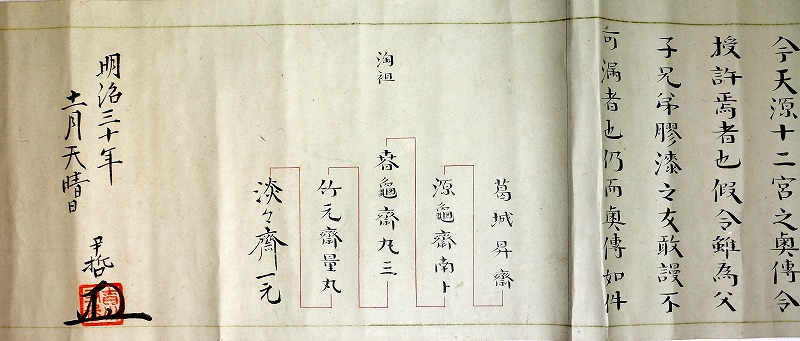 今天源十二宮之奥傳令
授許焉者也假令雖為父
子兄弟膠漆之友敢謾不
可漏者也仍而奥傳如件
葛城昇齋
源龜齋南卜
春龜齋丸三
淘祖
竹元齋量丸
淡々齋一元
明治三十年
十一月天晴日